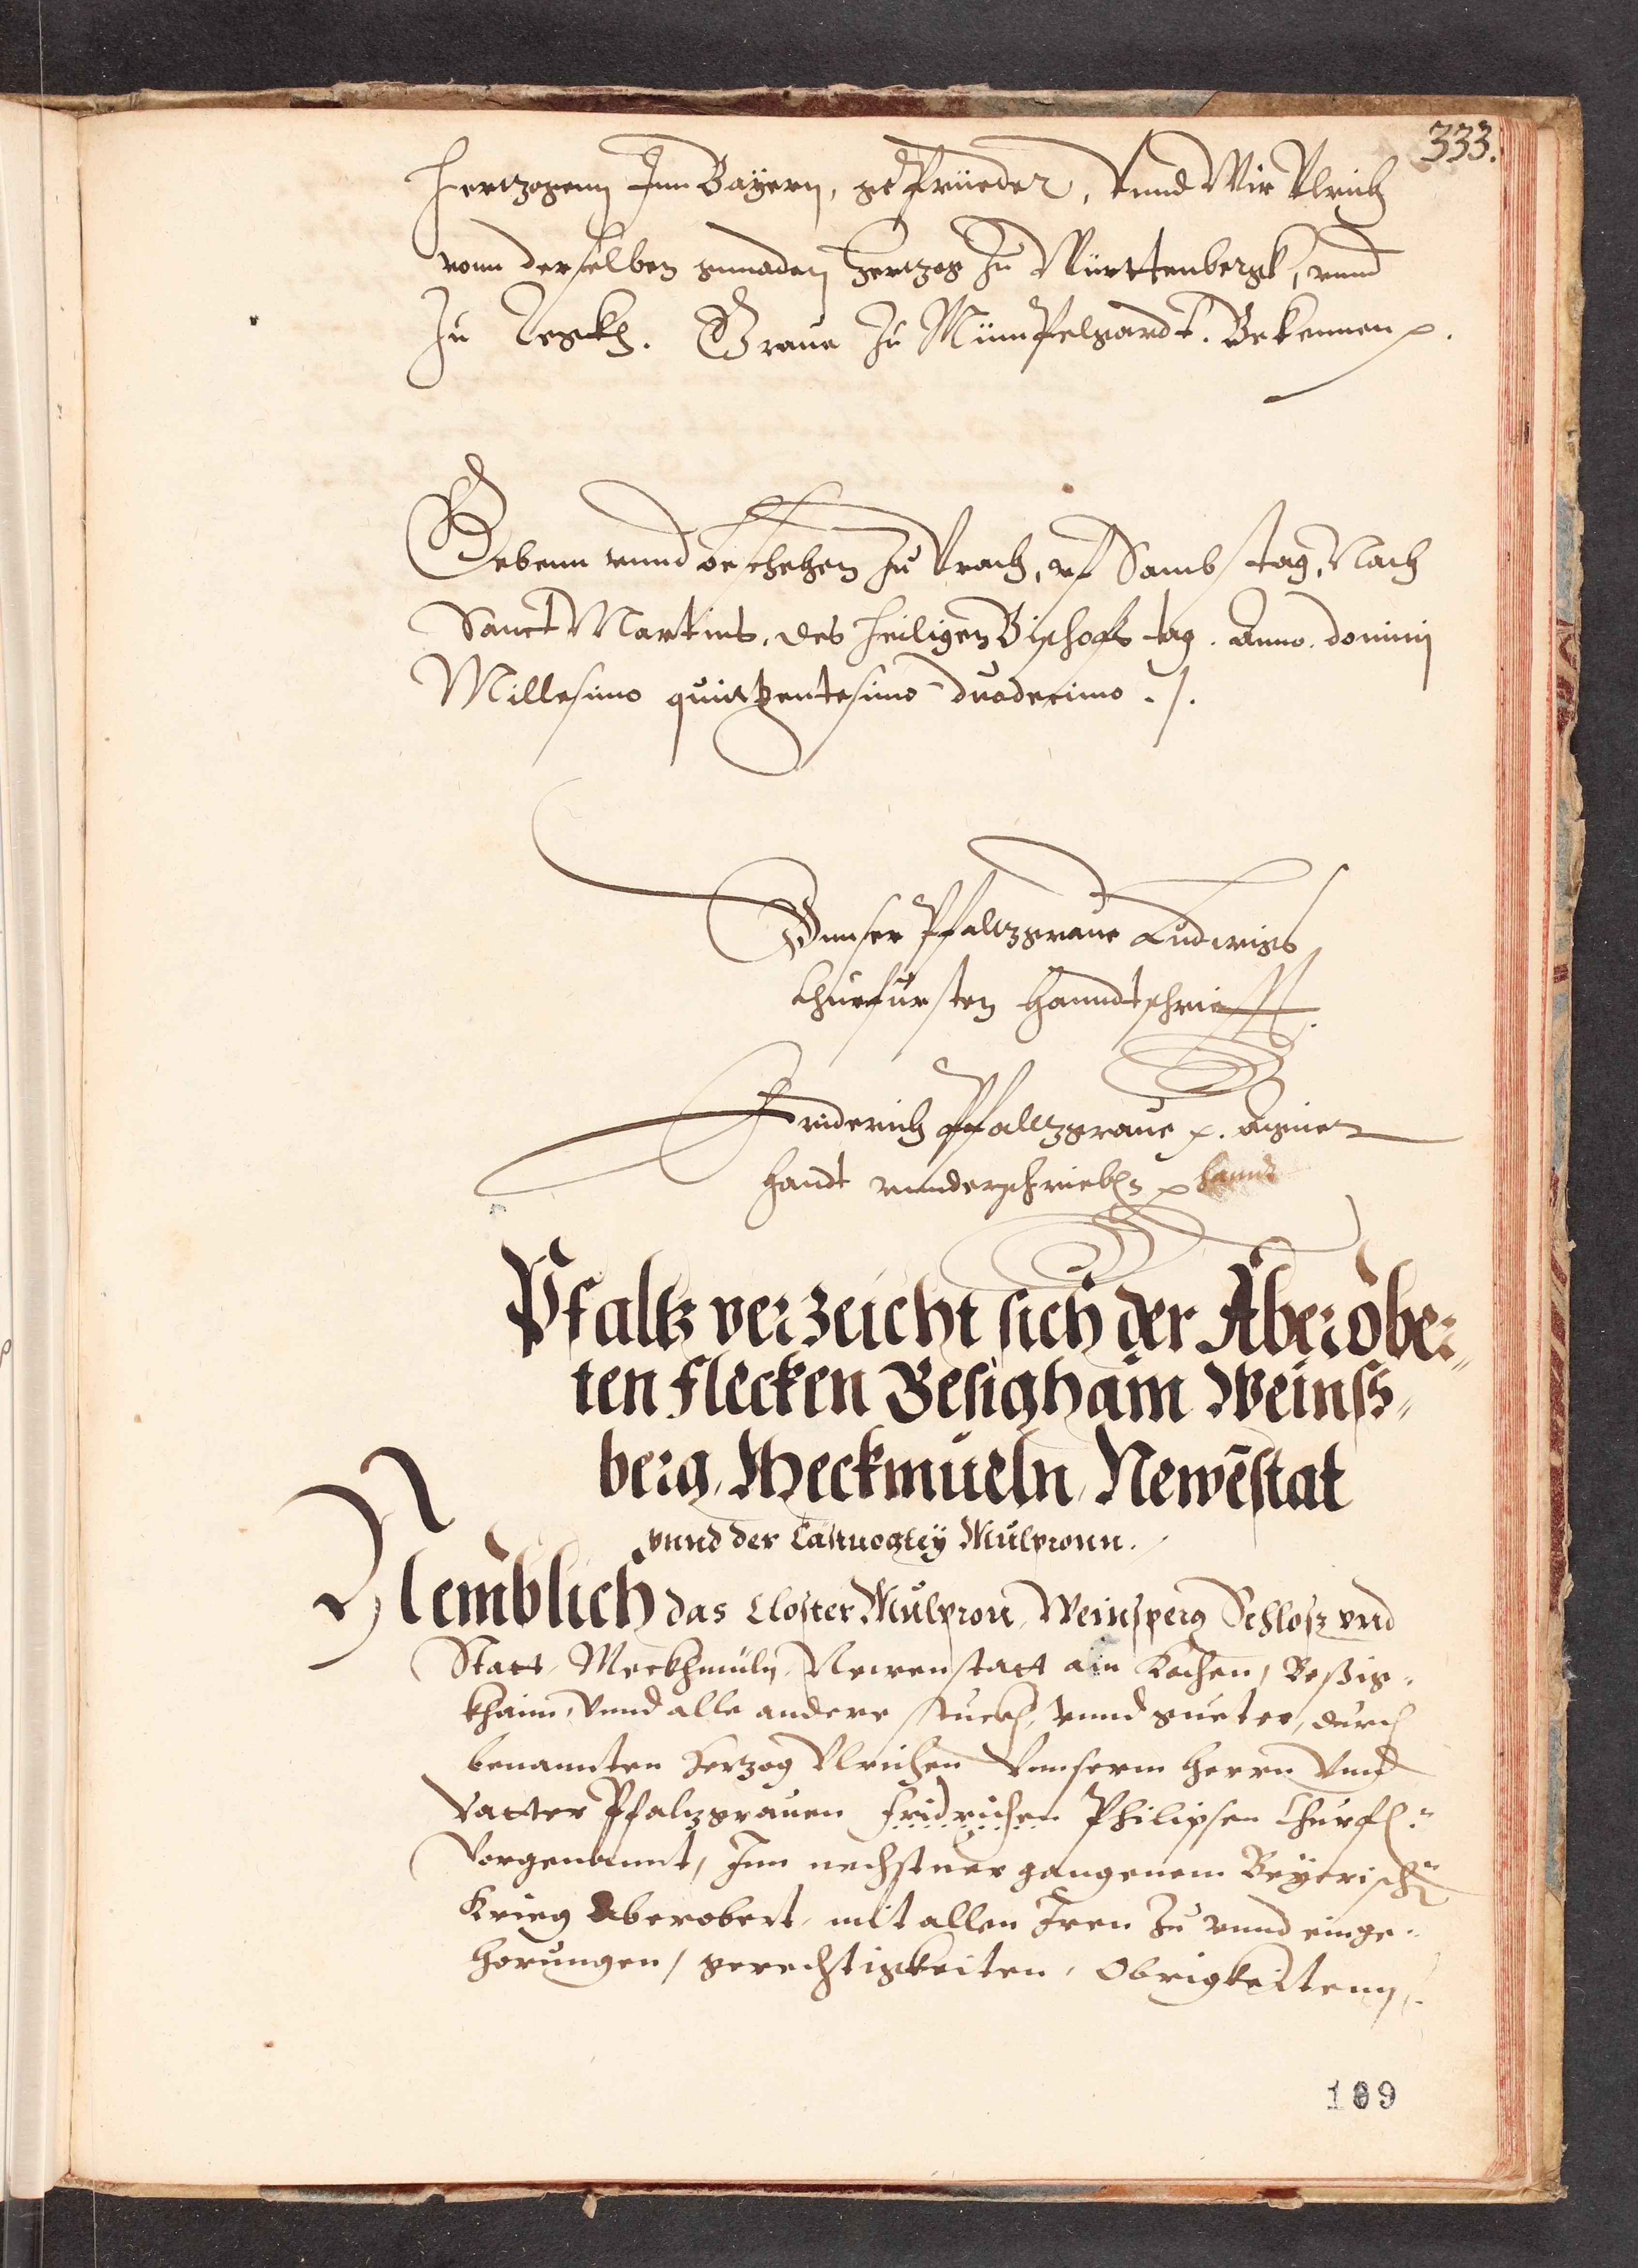 333.
Hertzogenn Inn Bayern, geprüeder, Vnnd Wir Vlrich
vonn derselben gnnaden Hertzog Zu Württenbergk, vnnd
Zu Tegkh. Graue Zu Mümpelgardt. Bekennen p.
Gebenn vnnd beschehen zu Vrach, vf Sambstag, Nach
Sanct Martins, des heiligen Bischoffs tag. Anno. dominj
Millesimo quintzentesimo duodecimo ./.
Vnnser Pfaltzgraue Ludwigs
Churfürsten Hanndtschriefft.
Friderich Pfaltzgraue p. aigner
handt vnnderschrieben p hannd
Pfaltz verzeicht sich der Aberober„
ten flecken Besighaim Weinss„
berg, Meckmüeln, Newēstat
vnnd der Castuogtey Mulpronn.
Nemblich das Closter Mulpron, Weinsperg Schlosz vnd
Statt, Meckhmüln, Newenstatt am Kochen, Beßig„
khaim, Vnnd alle andere stuckh, vnnd gueter, durch
benannten Hertzog Vlrichen Vnnserm Herrn Vnnd
Vatter Pfaltzgrauen Fridrichen Philipsen Churfl:
Vorgenannt, Inn nechstuergangenem Beyerischn
Krieg Aberobert, mit allen Iren Zu vnnd einge„
horungen, gerechtigkeiten, Obrigkeitenn,
189